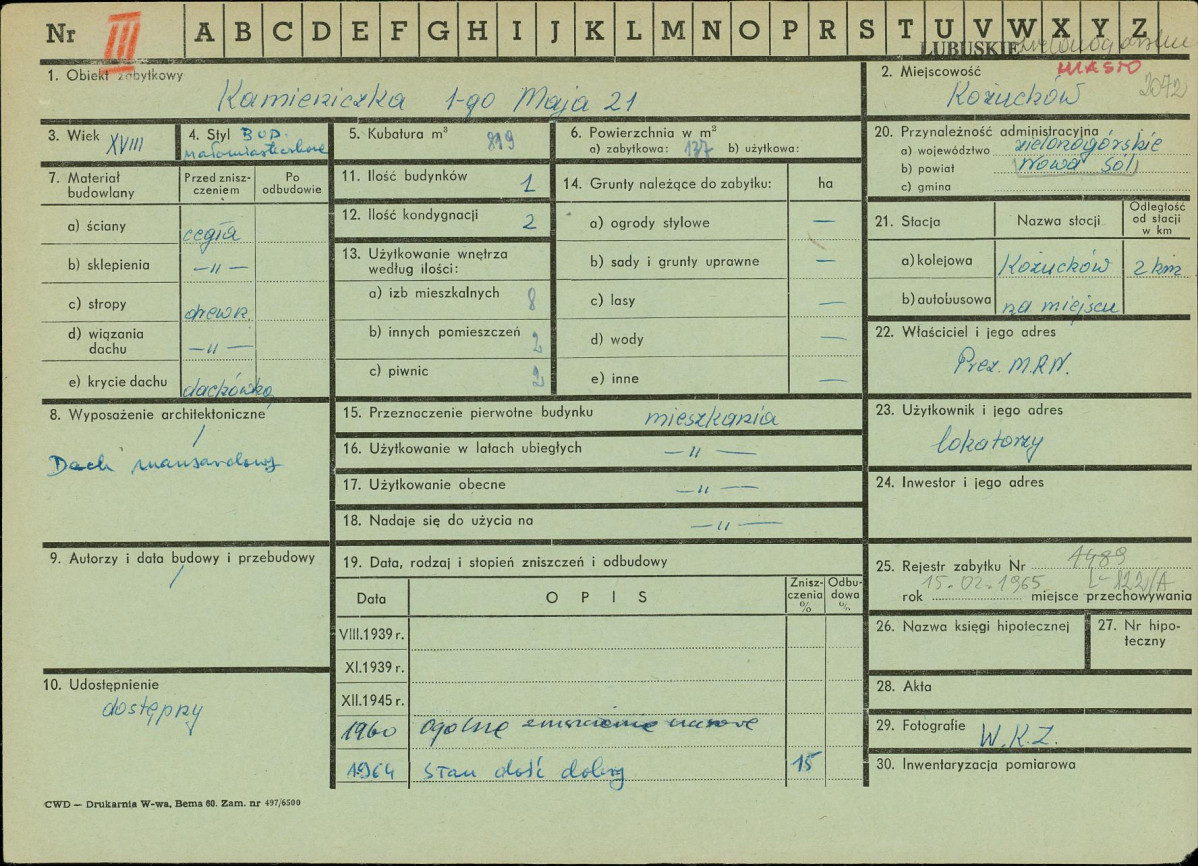 Nr III A B C D E F G H I J K L M N O P R S T U V W X Y Z
LUBUSKIE
1. Obiekt zabytkowy
Kamieniczka 1-go Maja 21
2. Miejscowość
MIASTO
2072
Kożuchów
3. Wiek XVIII
4. Styl Bud. małomiasteczkowe
5. Kubatura m³ 819
6. Powierzchnia w m²
a) zabytkowa: 137 b) użytkowa:
7. Materiał budowlany
Przed zniszczeniem
Po odbudowie
a) ściany cegła
b) sklepienia —〃—
c) stropy drewn
d) wiązania dachu —〃—
e) krycie dachu dachówka
8. Wyposażenie architektoniczne
Dach mansardowy
9. Autorzy i data budowy i przebudowy
10. Udostępnienie
dostępny
11. Ilość budynków 1
12. Ilość kondygnacji 2
13. Użytkowanie wnętrza według ilości:
a) izb mieszkalnych 8
b) innych pomieszczeń 2
c) piwnic 2
14. Grunty należące do zabytku: ha
a) ogrody stylowe —
b) sady i grunty uprawne —
c) lasy —
d) wody —
e) inne —
15. Przeznaczenie pierwotne budynku mieszkania
16. Użytkowanie w latach ubiegłych —〃—
17. Użytkowanie obecne —〃—
18. Nadaje się do użycia na —〃—
19. Data, rodzaj i stopień zniszczeń i odbudowy
Data
O P I S
Zniszczenia %
Odbudowa %
VIII.1939 r.
XI.1939 r.
XII.1945 r.
1960 ogólne
1964 stan dość dobry 15
20. Przynależność administracyjna
a) województwo zielonogórskie
b) powiat Nowa Sól
c) gmina
21. Stacja
Nazwa stacji
Odległość od stacji w km
a) kolejowa Kożuchów 2 km
b) autobusowa na miejscu
22. Właściciel i jego adres
Prez. M.R.N.
23. Użytkownik i jego adres
lokatorzy
24. Inwestor i jego adres
25. Rejestr zabytku Nr 1489
15.02.1965 L-822/A
rok miejsce przechowywania
26. Nazwa księgi hipotecznej
27. Nr hipoteczny
28. Akta
29. Fotografie W.K.Z.
30. Inwentaryzacja pomiarowa
CWD — Drukarnia W-wa, Bema 60. Zam. nr 497/6500